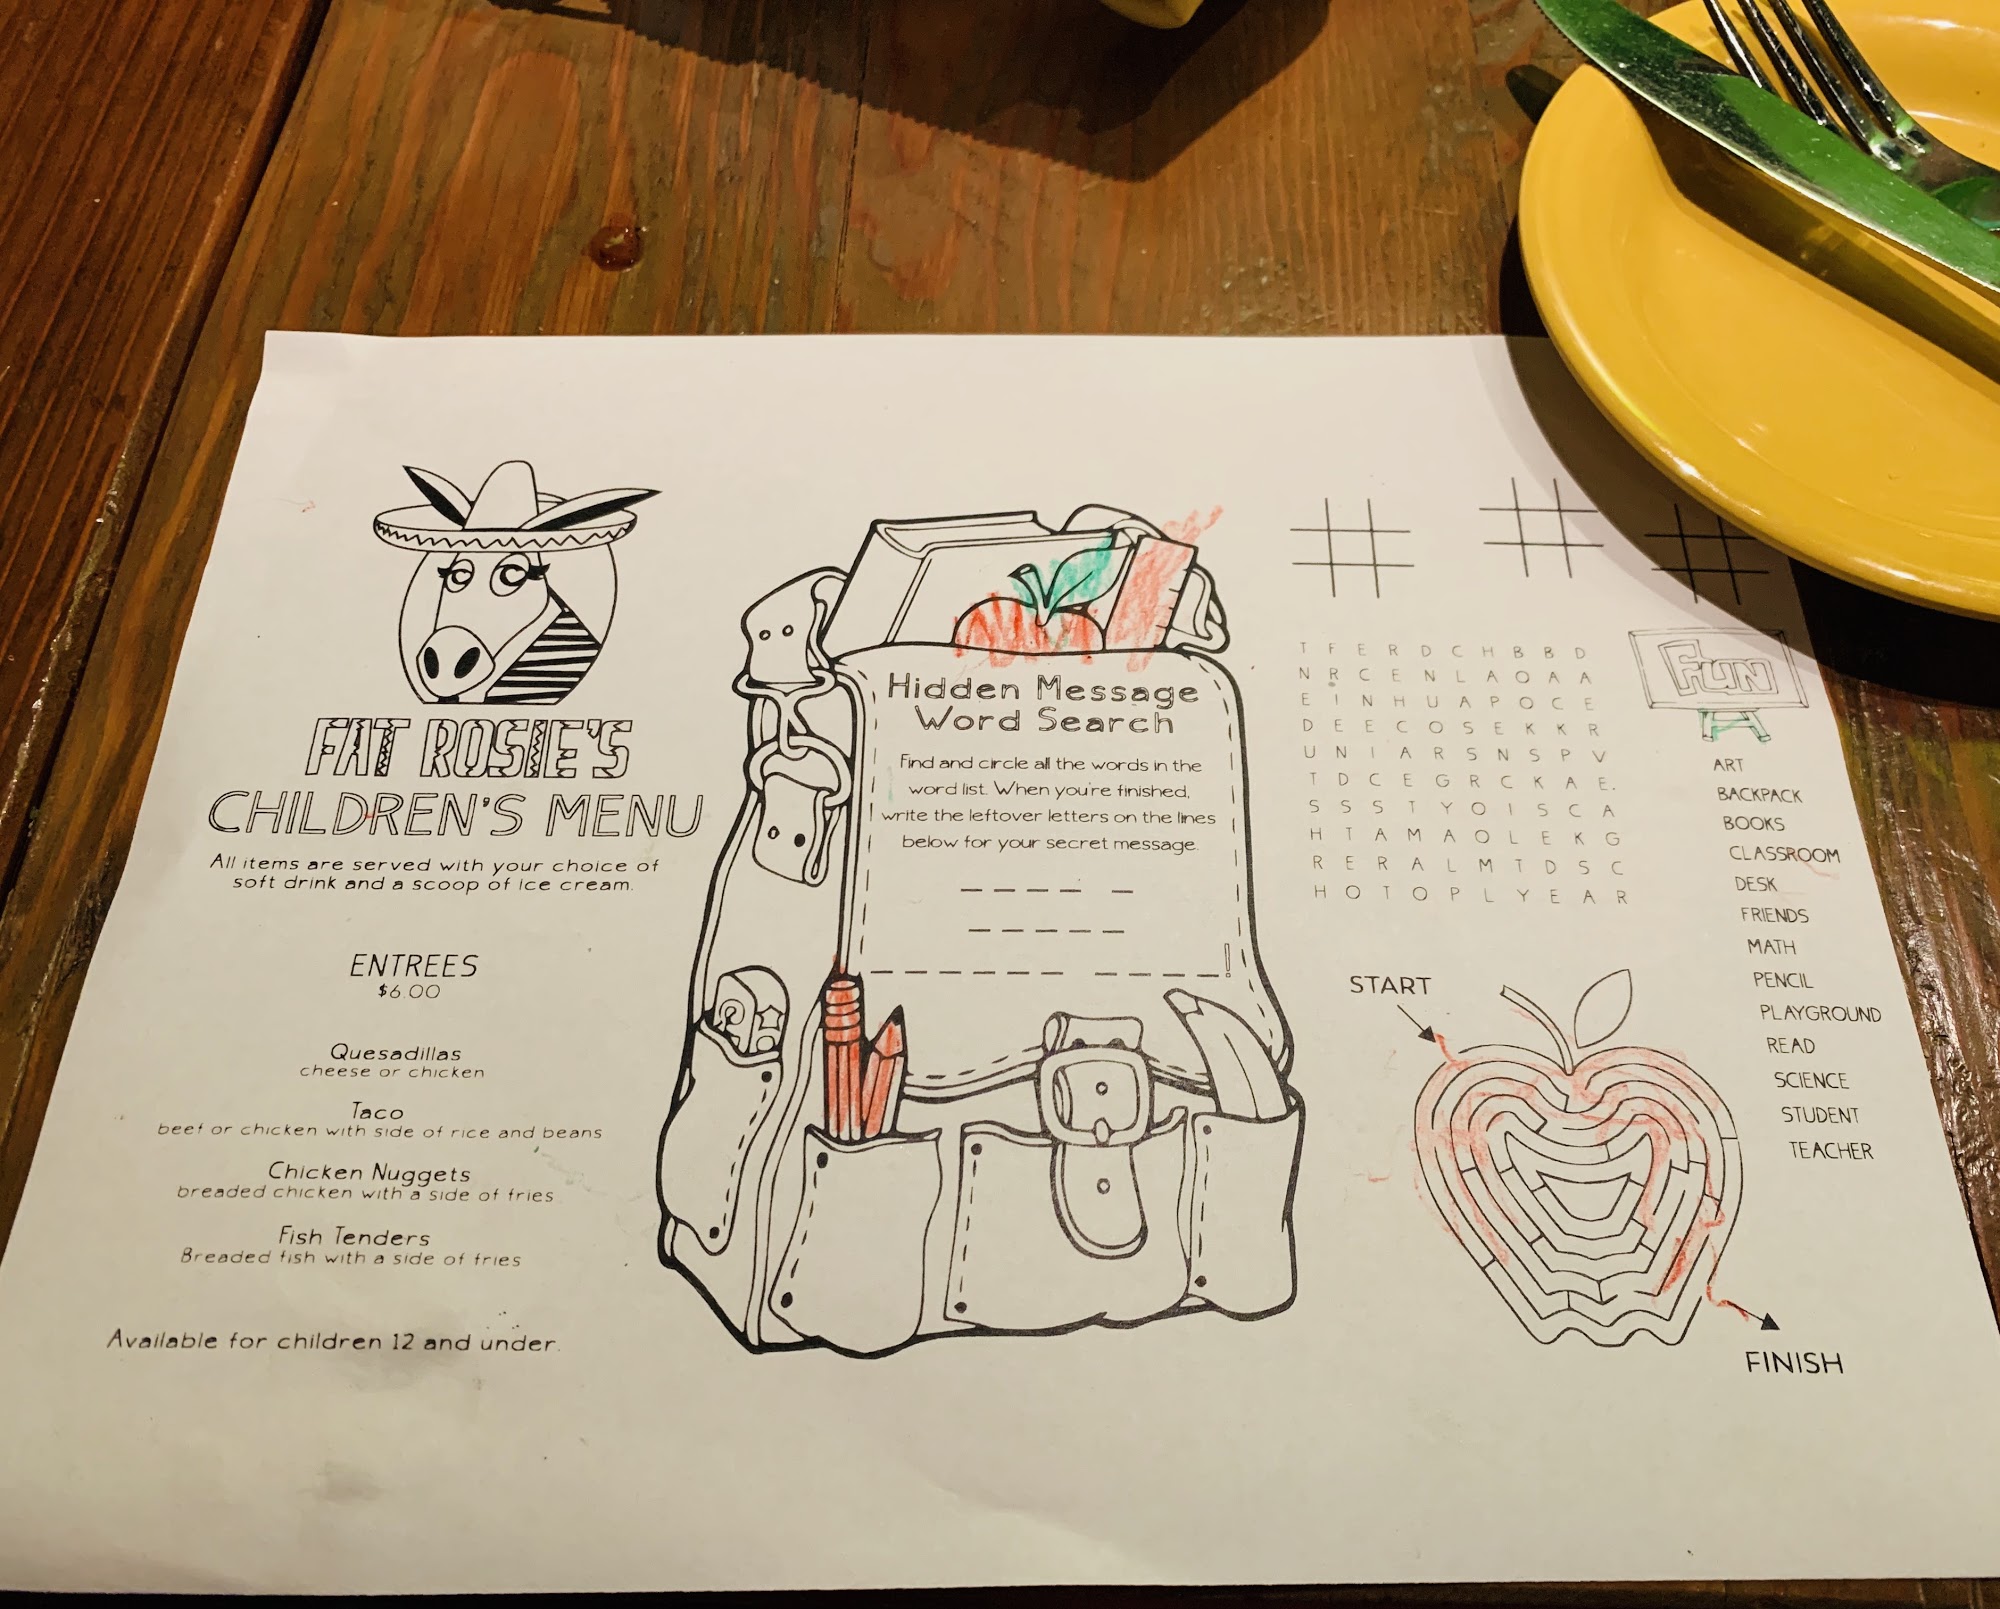 FAT ROSIE'S
CHILDREN'S MENU
All items are served with your choice of
soft drink and a scoop of ice cream.
ENTREES
$6.00
Quesadillas
cheese or chicken
Taco
beef or chicken with side of rice and beans
Chicken Nuggets
breaded chicken with a side of fries
Fish Tenders
Breaded fish with a side of fries
Available for children 12 and under.
Hidden Message
Word Search
Find and circle all the words in the
word list. When you're finished,
write the leftover letters on the lines
below for your secret message.
!
T F E R D C H B B D
N R C E N L A O A A
E I N H U A P O C E
D E E C O S E K K R
U N I A R S N S P V
T D C E G R C K A E.
S S S T Y O I S C A
H T A M A O L E K G
R E R A L M T D S C
H O T O P L Y E A R
FUN
ART
BACKPACK
BOOKS
CLASSROOM
DESK
FRIENDS
MATH
PENCIL
PLAYGROUND
READ
SCIENCE
STUDENT
TEACHER
START
FINISH